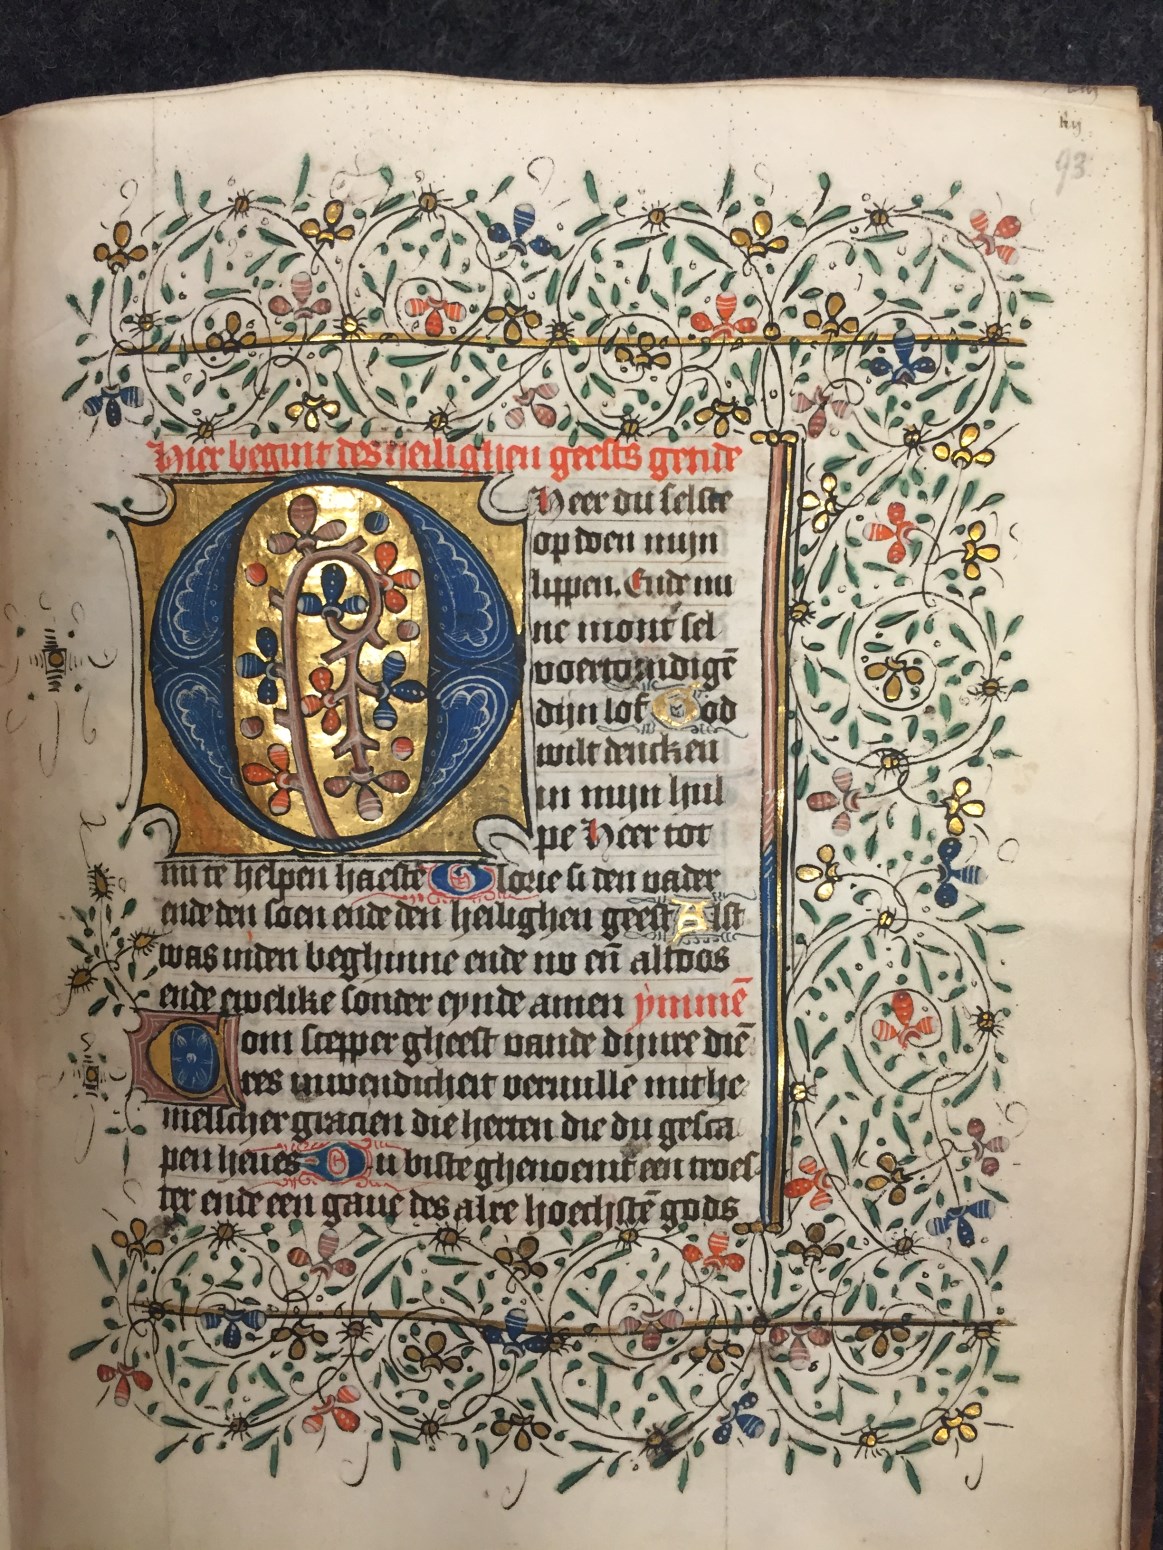 liij
93
Hier begint des heilighen geests getide
O Heer du selste
op doen mijn
lippen. Ende mi
ne mont sel
voertcondigē
dijn lof God
wilt dencken
in mijn hul
pe Heer tot
mi te helpen haestē Glorie si den vader
ende den soen ende den heilighen geest Alst
was inden beghinne ende nv eñ altoos
ende ewelike sonder eynde amen ymmē
Com scepper gheest vande dijnre diē
res inwendicheit veruulle mit he
melscher gracien die herten die du gesca
pen heues Du biste ghenoemt een troes
ter ende een gaue des alre hoechstē gods